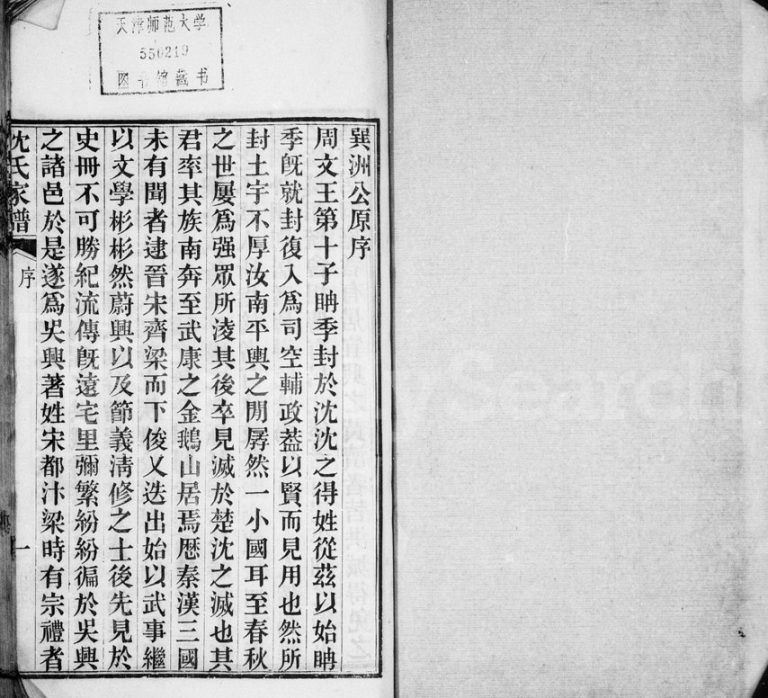 天津师范大学
550219
图书馆藏书
巽洲公原序
周文王第十子聃季封於沈沈之得姓從茲以始聃
季旣就封復入爲司空輔政葢以賢而見用也然所
封土宇不厚汝南平輿之閒孱然一小國耳至春秋
之世屢爲强眾所淩其後卒見滅於楚沈之滅也其
君率其族南奔至武康之金鵝山居焉歷秦漢三國
未有聞者逮晉宋齊梁而下俊乂迭出始以武事繼
以文學彬彬然蔚興以及節義淸修之士後先見於
史冊不可勝紀流傳旣遠宅里彌繁紛紛徧於吳興
之諸邑於是遂爲吳興著姓宋都汴梁時有宗禮者
沈氏家譜
序
一